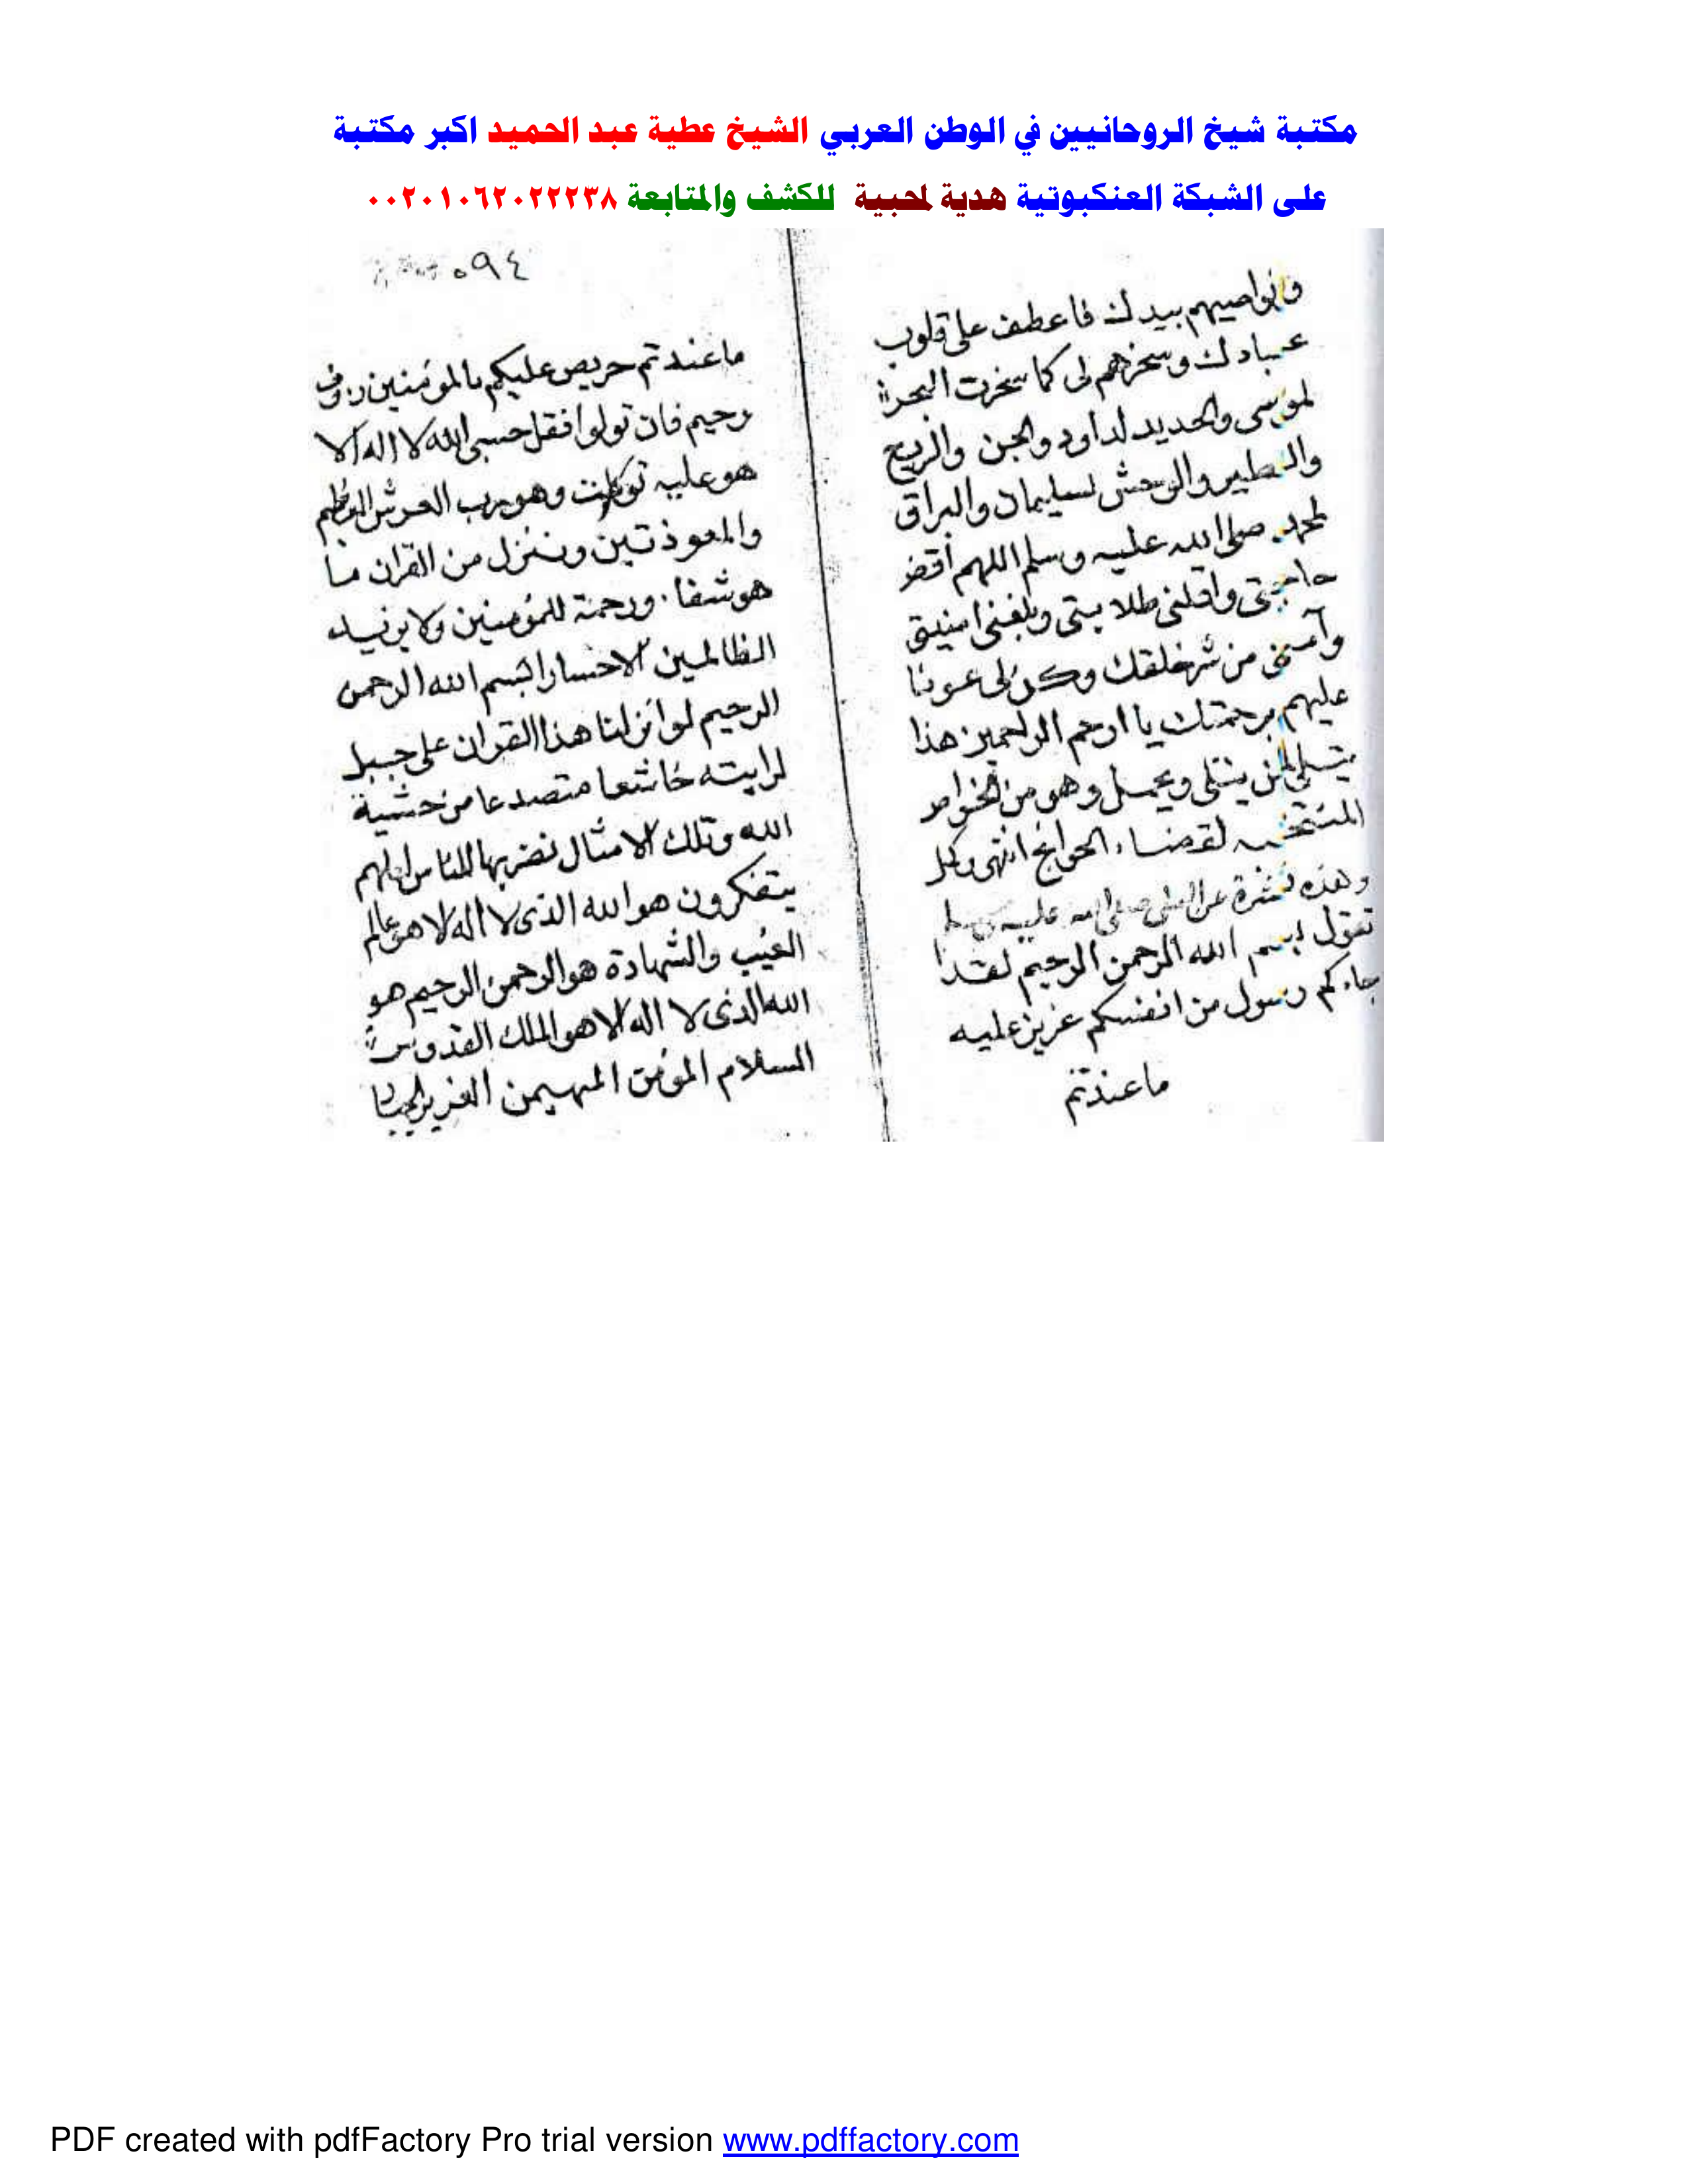 مكتبة شيخ الروحانيين في الوطن العربي الشيخ عطية عبد الحميد اكبر مكتبة
على الشبكة العنكبوتية هدية لمحبية للكشف والمتابعة ٠٠٢٠١٠٦٢٠٢٢٢٣٨
ونواصيهم بيدك فاعطف على قلوب
عبادك وسخرهم لى كما سخرت البحر
لموسى والحديد لداود والجن والريح
والطير والوحش لسليمان والبراق
لمحمد صلى الله عليه وسلم اللهم أقض
حاجتى طلابتى وبلغنى امنيتى
وآمنى من شر خلقك وكن لى عونا
عليهم برحمتك يا ارحم الراحمين هذا
يتلى ويحمل وهو من الخواص
لقضاء الحوايج انتهى
وهذه نشرة عن النبى صلى الله عليه وسلم
تقول بسم الله الرحمن الرحيم لقد
جاءكم رسول من انفسكم عزيز عليه
ما عندتم
٥٩٤
ما عندتم حريص عليكم بالمؤمنين روف
رحيم فان تولوا فقل حسبى الله لا اله الا
هو عليه توكلت وهو رب العرش العظيم
والمعوذتين وننزل من القران ما
هو شفاء ورحمة للمؤمنين ولا يزيد
الظالمين الاخسارا بسم الله الرحمن
الرحيم لو انزلنا هذا القران على جبل
لرايته خاشعا متصدعا من خشية
الله وتلك الامثال نضربها للناس لعلهم
يتفكرون هو الله الذى لا اله الا هو عالم
الغيب والشهادة هو الرحمن الرحيم هو
الله الذى لا اله الا هو الملك القدوس
السلام المؤمن المهيمن العزيز الجبار
PDF created with pdfFactory Pro trial version www.pdffactory.com